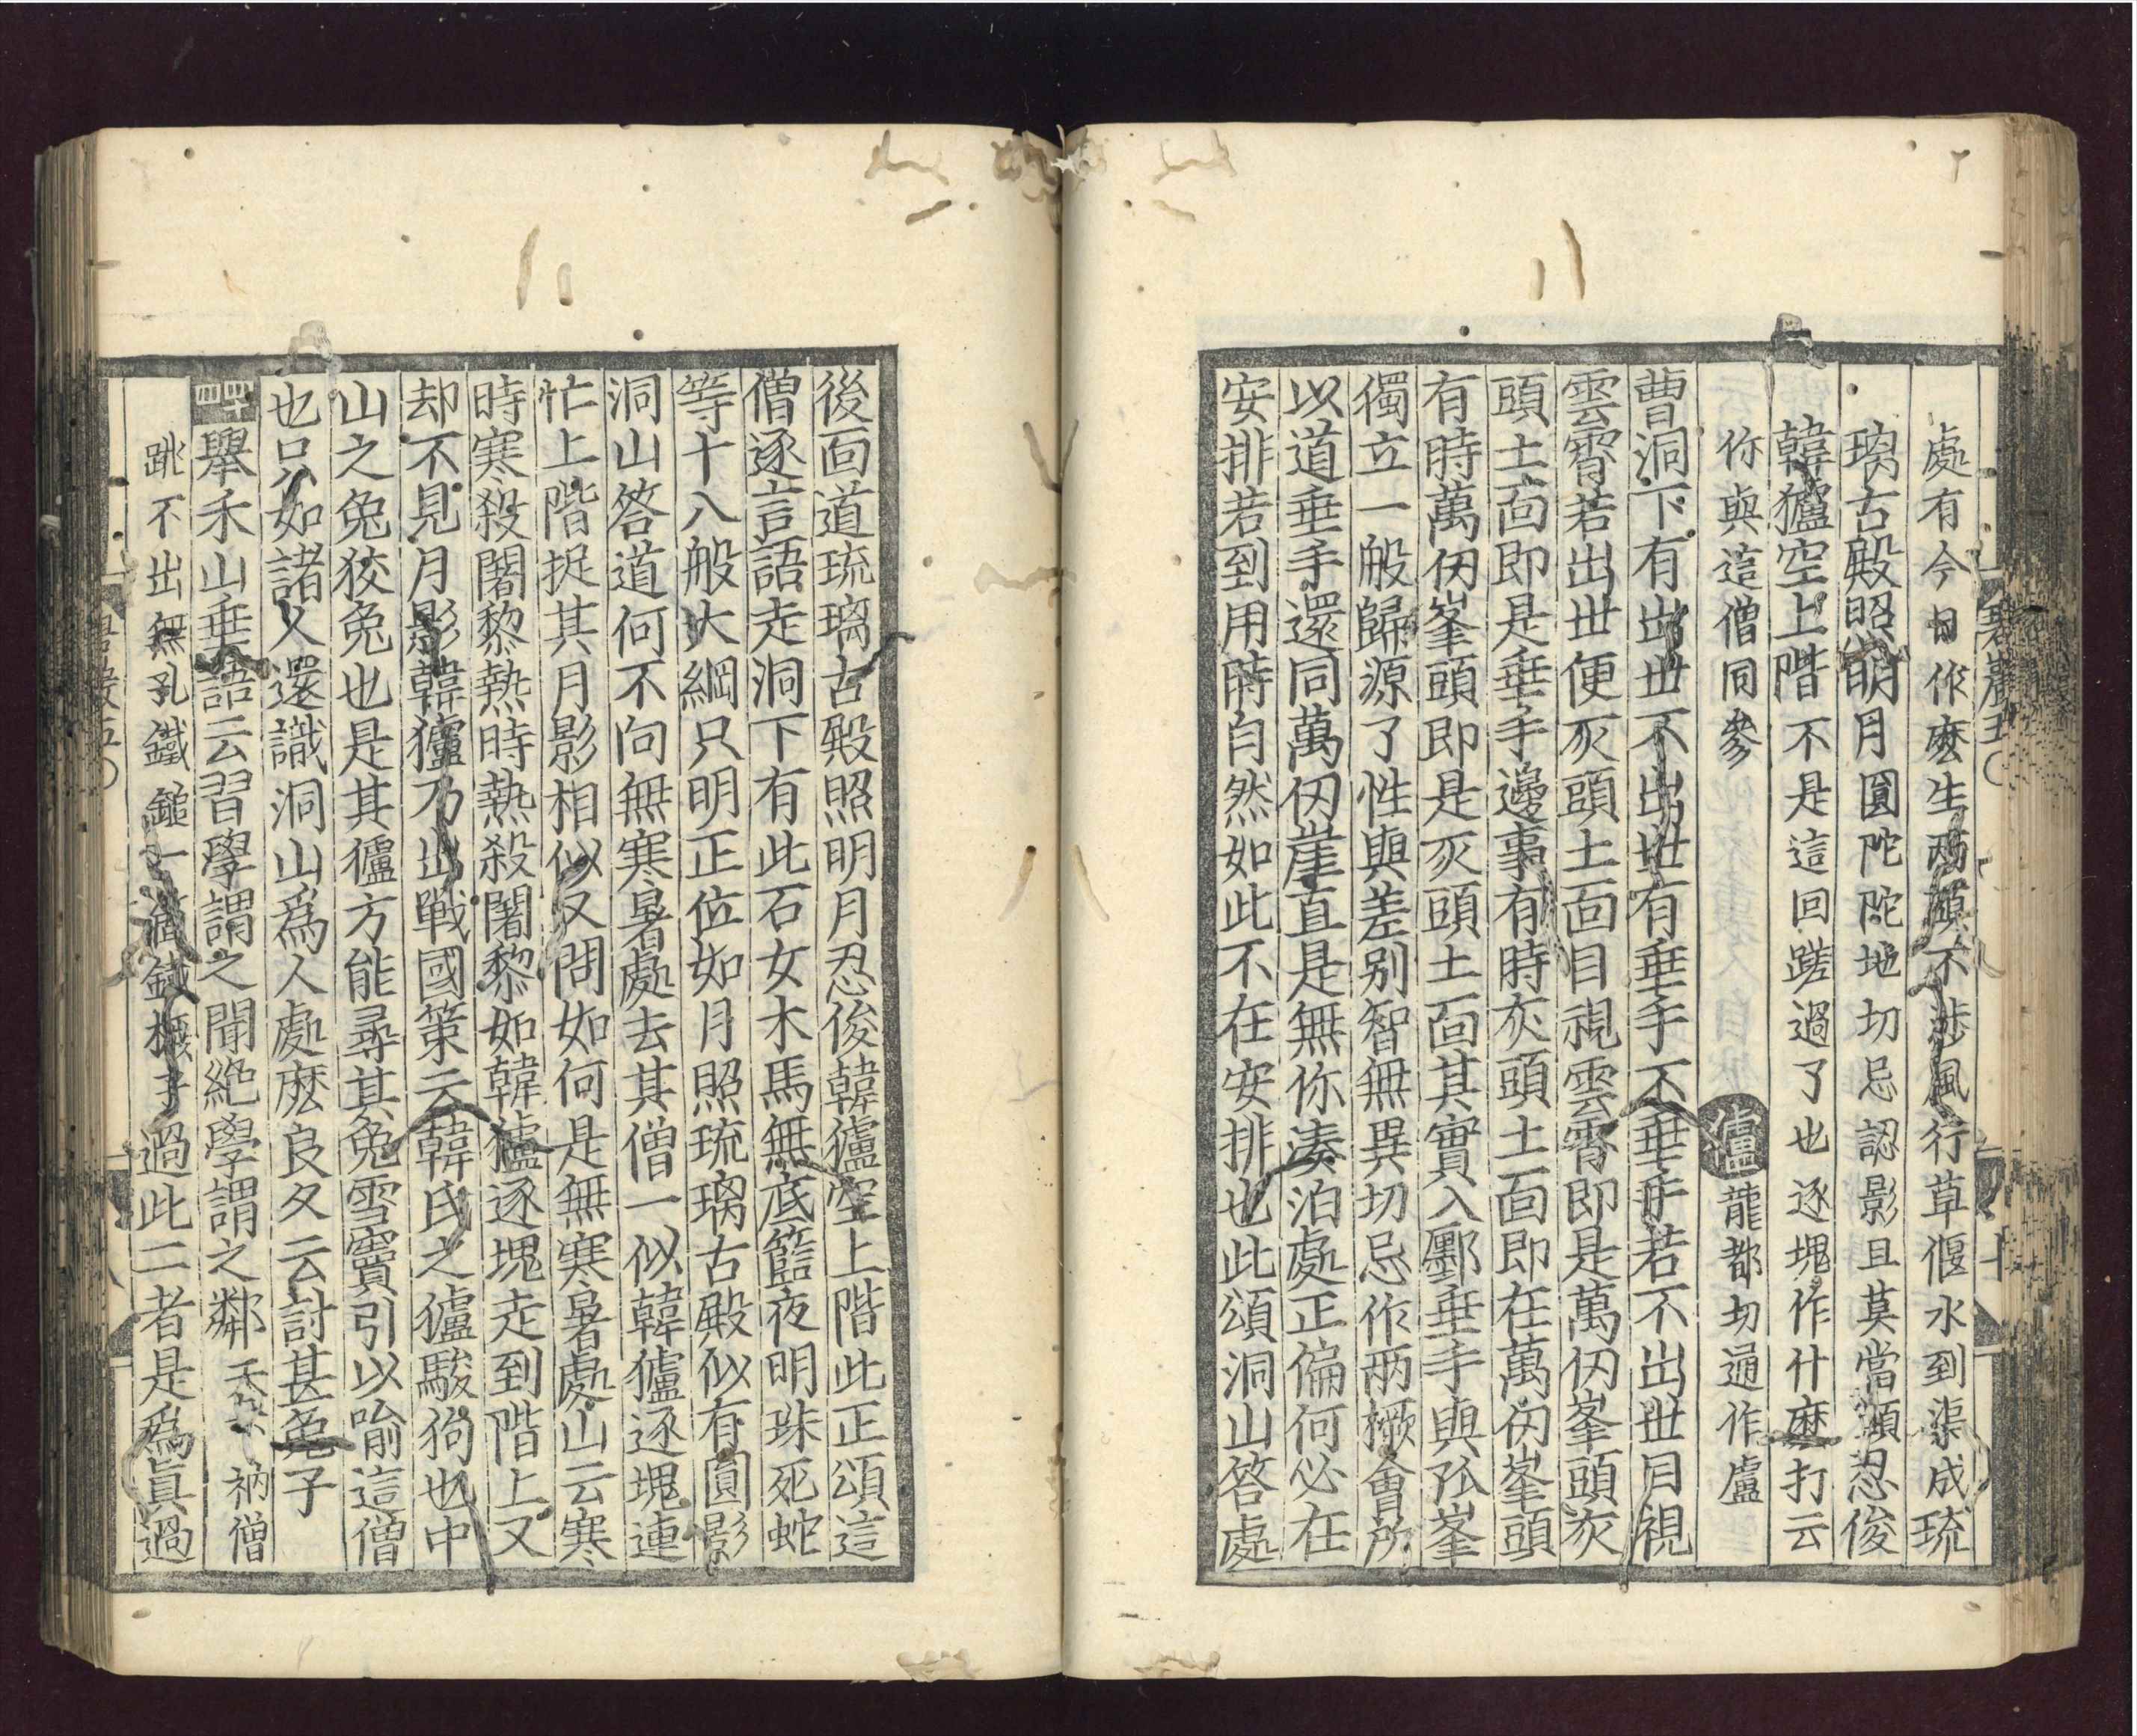 處有今日作麼生兩頭不涉風行草偃水到渠成琉
璃古殿照明月圓陀陀地切忌認影且莫當頭忍俊
韓獹空上階不是這回蹉過了也逐塊作什麼打云
你與這僧同參 獹龍都切通作盧
曹洞下有出世不出世有垂手不垂手若不出世目視
雲霄若出世便灰頭土面目視雲霄即是萬仞峯頭灰
頭土面即是垂手邊事有時灰頭土面即在萬仞峯頭
有時萬仞峯頭即是灰頭土面其實入鄽垂手與孤峯
獨立一般歸源了性與差別智無異切忌作兩橛會所
以道垂手還同萬仞崖直是無你湊泊處正偏何必在
安排若到用時自然如此不在安排也此頌洞山答處
後面道琉璃古殿照明月忍俊韓獹空上階此正頌這
僧逐言語走洞下有此石女木馬無底籃夜明珠死蛇
等十八般大綱只明正位如月照琉璃古殿似有圓影
洞山答道何不向無寒暑處去其僧一似韓獹逐塊連
忙上階捉其月影相似又問如何是無寒暑處山云寒
時寒殺闍黎熱時熱殺闍黎如韓獹逐塊走到階上又
却不見月影韓獹乃出戰國策云韓氏之獹駿狗也中
山之兔狡兔也是其獹方能尋其兔雪竇引以喻這僧
也只如諸人還識洞山爲人處麽良久云討甚兔子
舉禾山垂語云習學謂之聞絶學謂之鄰天下衲僧
跳不出無孔鐵鎚一箇鐵橛子過此二者是爲真過